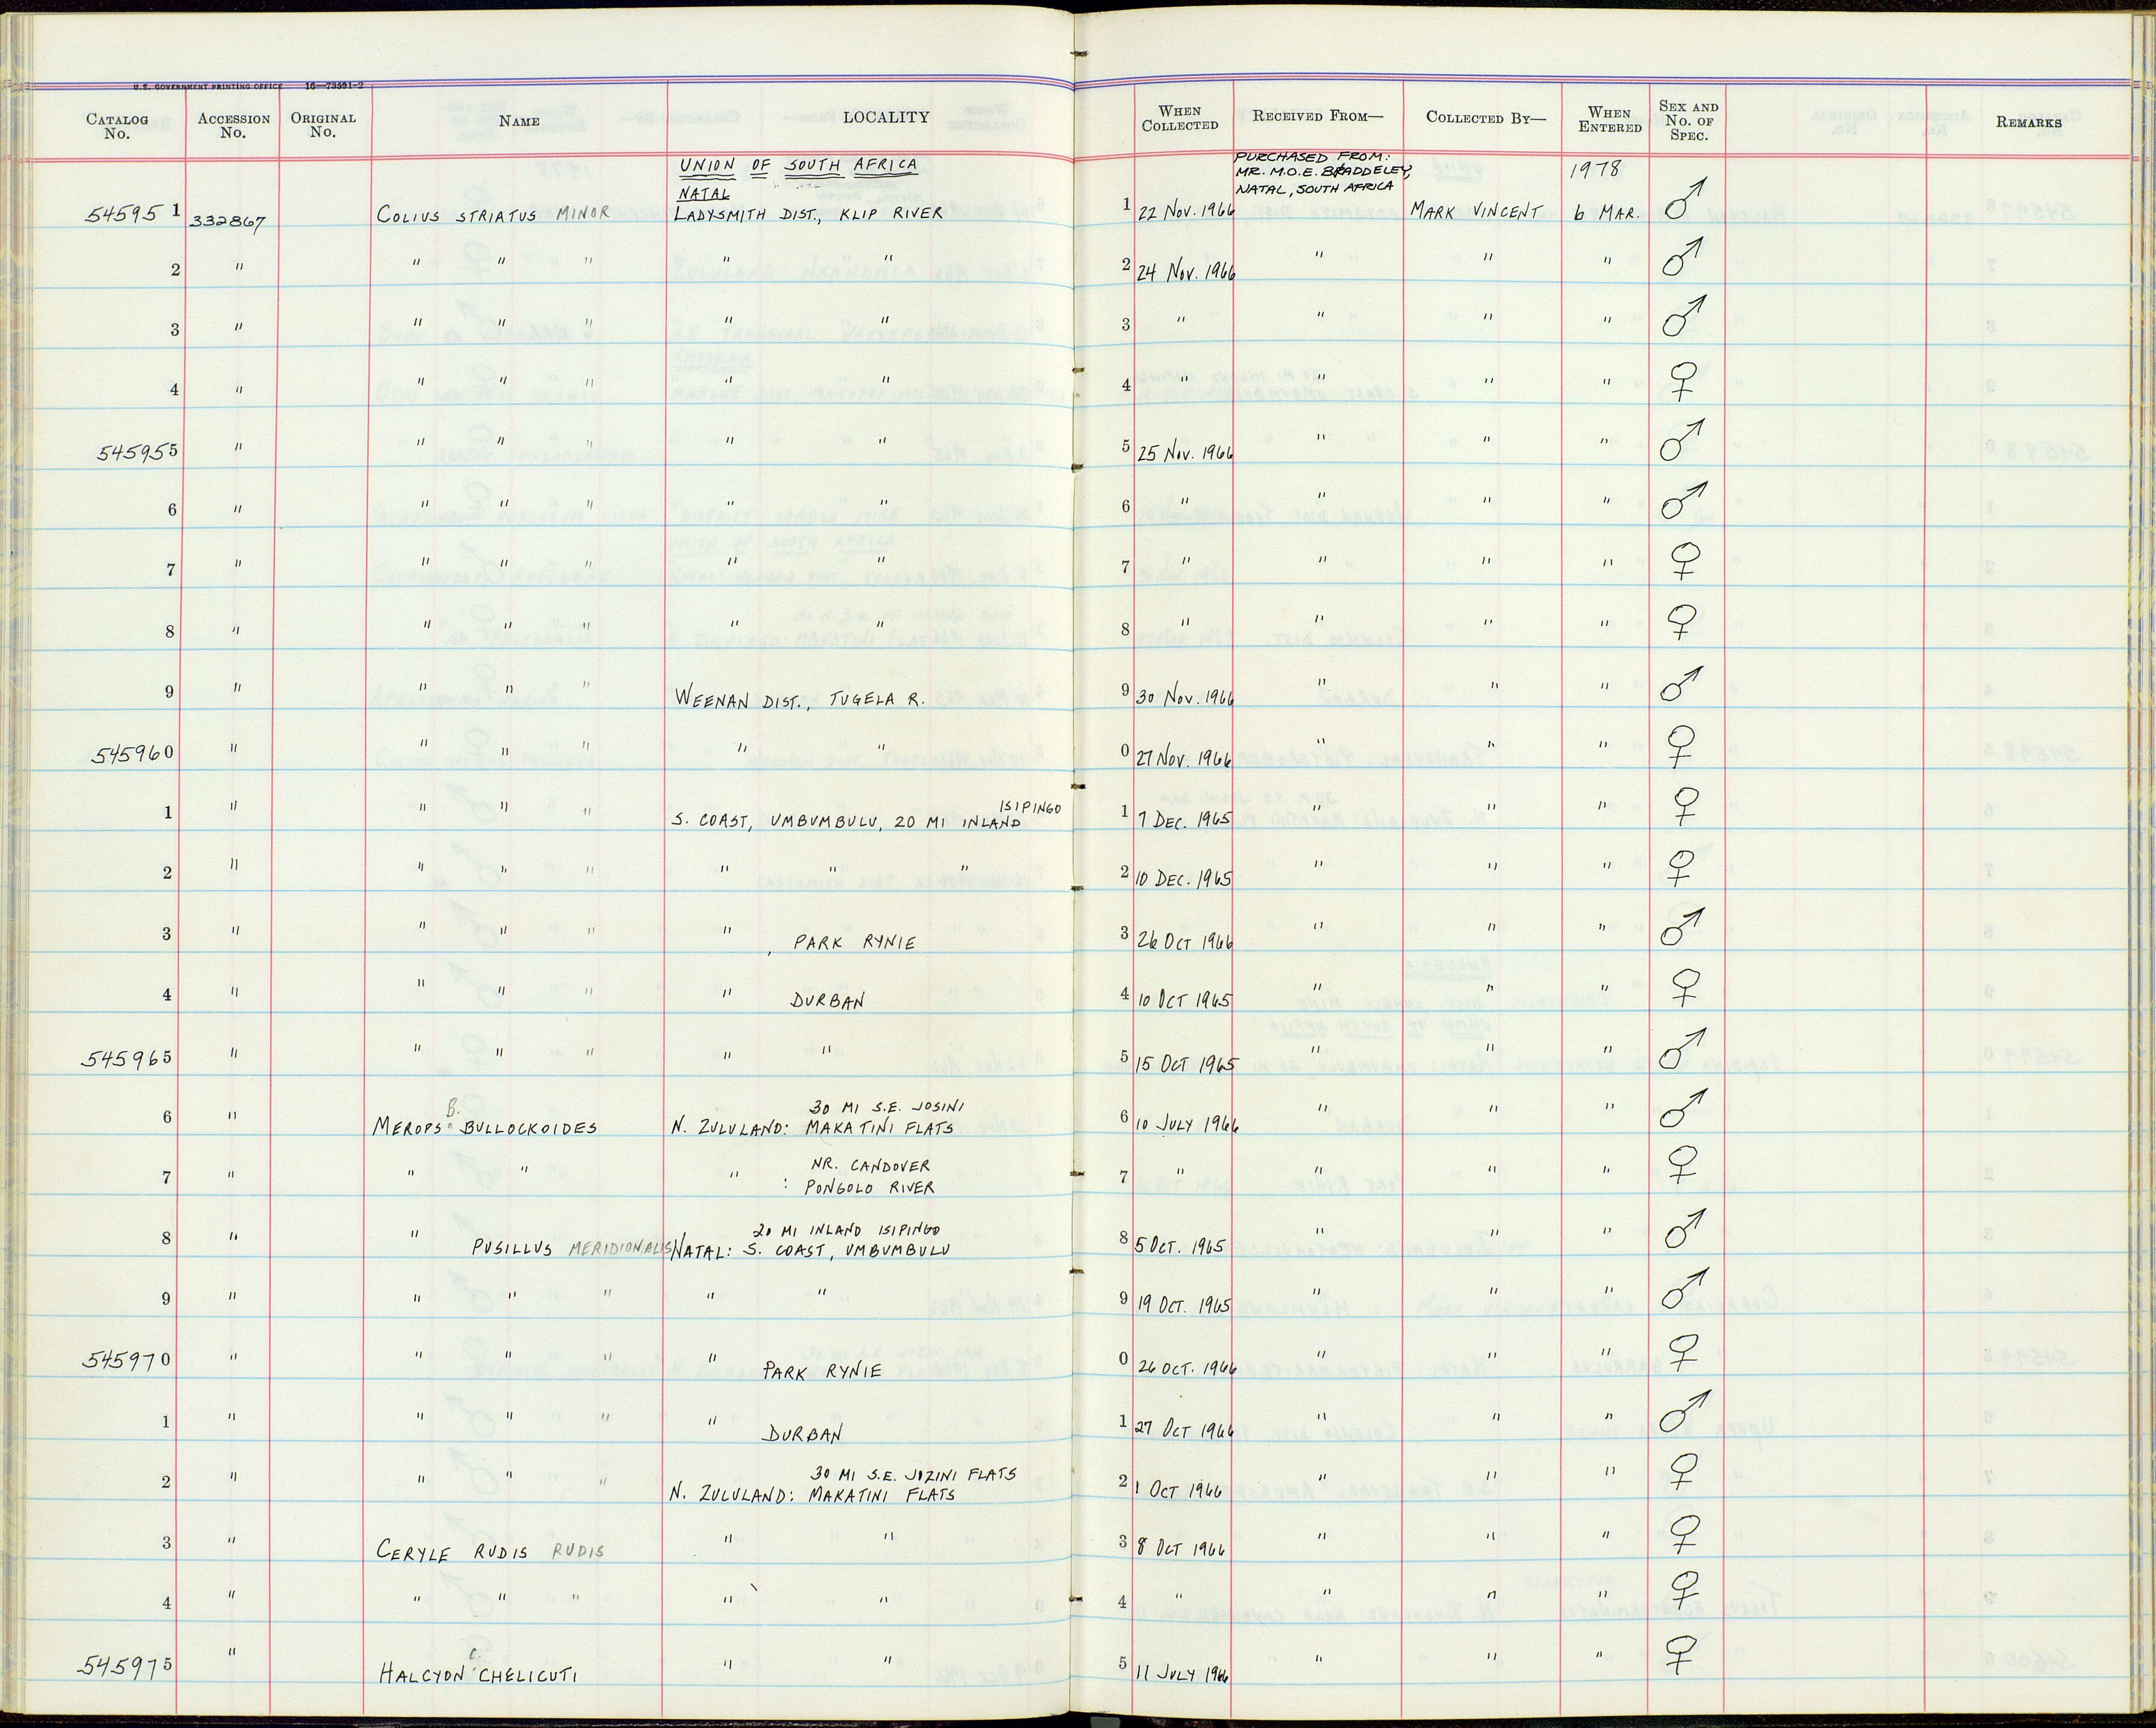 U.S. GOVERNMENT PRINTING OFFICE 16—73591-2
CATALOG No. ACCESSION No. ORIGINAL No. NAME LOCALITY WHEN COLLECTED RECEIVED FROM— COLLECTED BY— WHEN ENTERED SEX AND No. OF SPEC. REMARKS
UNION OF SOUTH AFRICA PURCHASED FROM: 1978
MR. M.O.E. BADDELEY,
NATAL NATAL, SOUTH AFRICA
545951 332867 COLIUS STRIATUS MINOR LADYSMITH DIST., KLIP RIVER 1 22 NOV. 1966 MARK VINCENT 6 MAR. ♂
2 " " " " " " 2 24 NOV. 1966 " " " ♂
3 " " " " " " 3 " " " " ♂
4 " " " " " " 4 " " " " ♀
545955 " " " " " " 5 25 NOV. 1966 " " " ♂
6 " " " " " " 6 " " " " ♂
7 " " " " " " 7 " " " " ♀
8 " " " " " " 8 " " " " ♀
9 " " " " WEENAN DIST., TUGELA R. 9 30 NOV. 1966 " " " ♂
545960 " " " " " " 0 27 NOV. 1966 " " " ♀
ISIPINGO
1 " " " " S. COAST, UMBUMBULU, 20 MI INLAND 1 7 DEC. 1965 " " " ♀
2 " " " " " " " 2 10 DEC. 1965 " " " ♀
3 " " " " " , PARK RYNIE 3 26 OCT 1966 " " " ♂
4 " " " " " DURBAN 4 10 OCT 1965 " " " ♀
545965 " " " " " " 5 15 OCT 1965 " " " ♂
B. 30 MI S.E. JOSINI
6 " MEROPS " BULLOCKOIDES N. ZULULAND: MAKATINI FLATS 6 10 JULY 1966 " " " ♂
NR. CANDOVER
7 " " " " : PONGOLO RIVER 7 " " " " ♀
20 MI INLAND ISIPINGO
8 " " PUSILLUS MERIDIONALIS NATAL: S. COAST, UMBUMBULU 8 5 OCT. 1965 " " " ♂
9 " " " " " " 9 19 OCT. 1965 " " " ♂
545970 " " " " " PARK RYNIE 0 26 OCT. 1966 " " " ♀
1 " " " " " DURBAN 1 27 OCT 1966 " " " ♂
30 MI S.E. JOZINI FLATS
2 " " " " N. ZULULAND: MAKATINI FLATS 2 1 OCT 1966 " " " ♀
3 " CERYLE RUDIS RUDIS " " 3 8 OCT 1966 " " " ♀
4 " " " " " " 4 " " " " ♀
C.
545975 " HALCYON " CHELICUTI " " 5 11 JULY 1966 " " " ♀